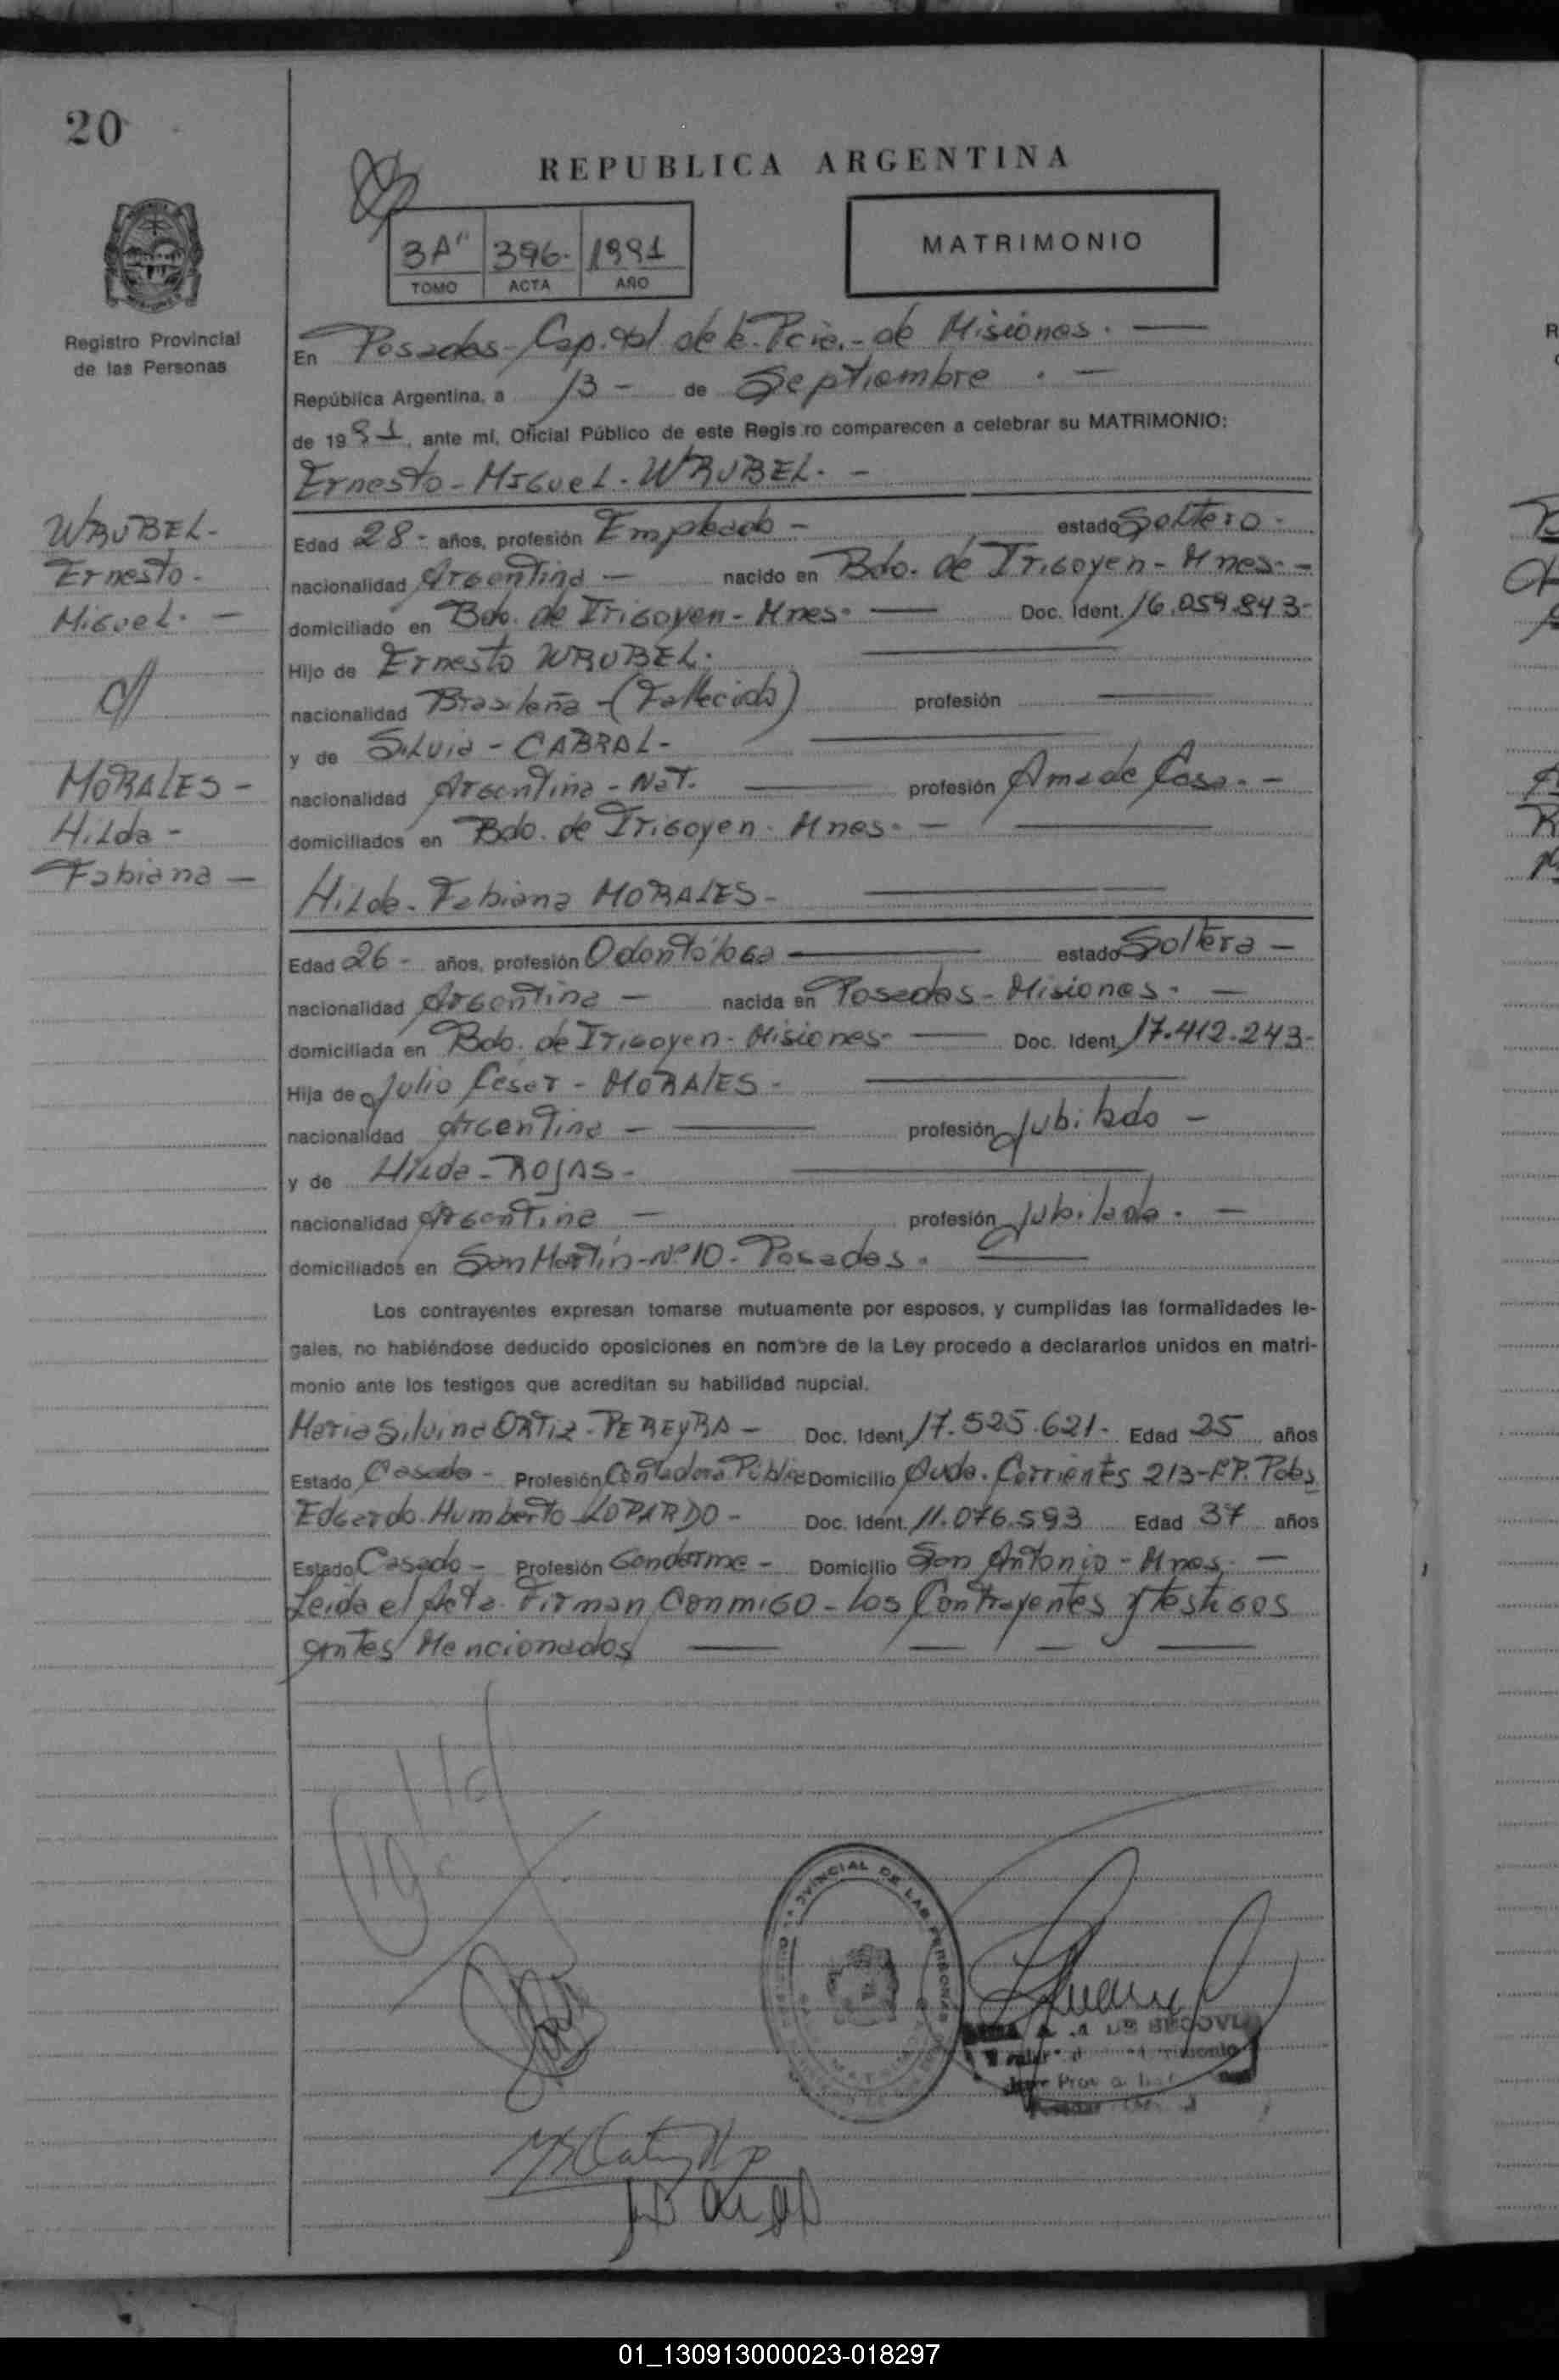 20
REPUBLICA ARGENTINA
3A" 396- 1991
TOMO ACTA AÑO
MATRIMONIO
Registro Provincial
de las Personas
En Posadas - Capital de la Pcia. - de Misiones. -
República Argentina, a 13 - de Septiembre . -
de 1991, ante mí, Oficial Público de este Registro comparecen a celebrar su MATRIMONIO:
Ernesto - Miguel - WRUBEL. -
WRUBEL -
Ernesto -
Miguel. -
MORALES -
Hilda -
Fabiana -
Edad 28 - años, profesión Empleado - estado Soltero -
nacionalidad Argentina - nacido en Bdo. de Irigoyen - Mnes. -
domiciliado en Bdo. de Irigoyen - Mnes. - Doc. Ident. 16.059.843-
Hijo de Ernesto WRUBEL.
nacionalidad Brasileña - (Fallecido) profesión
y de Silvia - CABRAL -
nacionalidad Argentina - Nat. profesión Ama de Casa. -
domiciliados en Bdo. de Irigoyen - Mnes. -
Hilda - Fabiana MORALES -
Edad 26 - años, profesión Odontóloga estado Soltera -
nacionalidad Argentina - nacida en Posadas - Misiones. -
domiciliada en Bdo. de Irigoyen - Misiones - Doc. Ident. 17.412.243-
Hija de Julio César - MORALES -
nacionalidad Argentina - profesión Jubilado -
y de Hilda - ROJAS -
nacionalidad Argentina - profesión Jubilada. -
domiciliados en San Martín - Nº 10 - Posadas.
Los contrayentes expresan tomarse mutuamente por esposos, y cumplidas las formalidades le-
gales, no habiéndose deducido oposiciones en nombre de la Ley procedo a declararlos unidos en matri-
monio ante los testigos que acreditan su habilidad nupcial.
Maria Silvina ORTIZ - PEREYRA - Doc. Ident. 17.525.621 - Edad 25 años
Estado Casada - Profesión Contadora Public Domicilio Avda. Corrientes 213 - Pdas
Edgardo Humberto LOPARDO - Doc. Ident. 11.076.593 Edad 37 años
Estado Casado - Profesión Gendarme - Domicilio San Antonio - Mnes. -
Leida el Acta Firman Conmigo - los Contrayentes y testigos
antes Mencionados
PROVINCIAL DE LAS PERSONAS
DE SEGOVIA
01_130913000023-018297